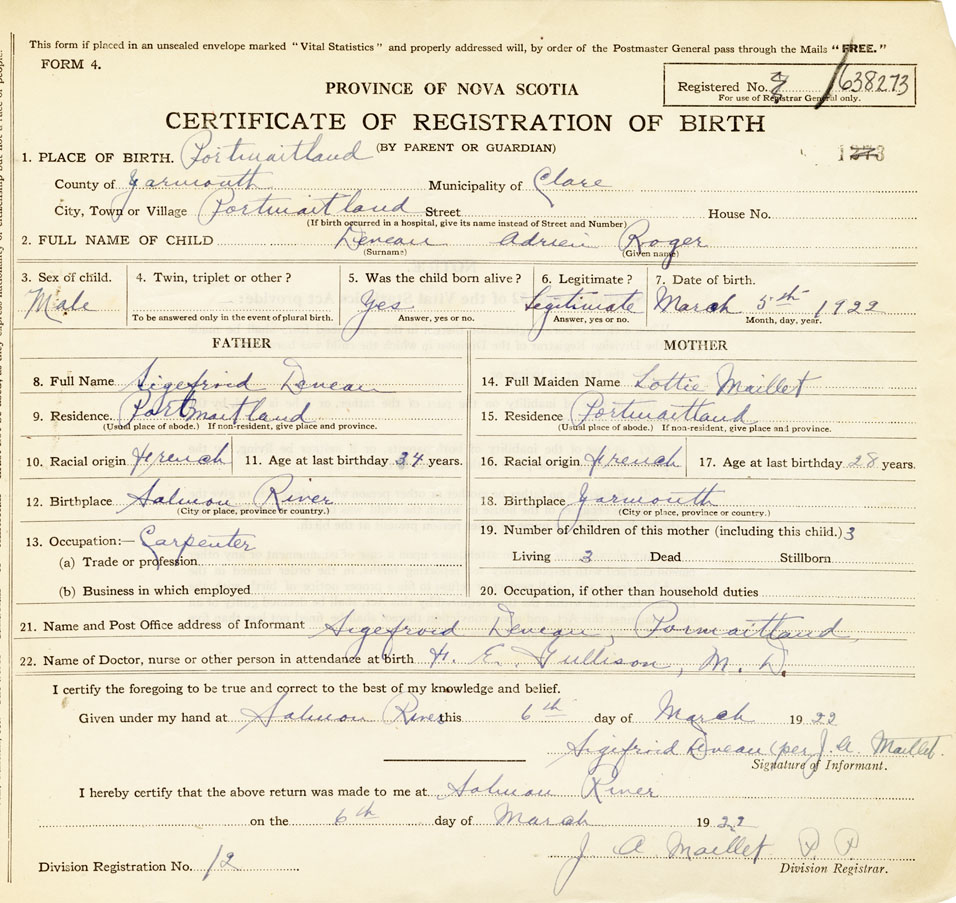 This form if placed in an unsealed envelope marked "Vital Statistics" and properly addressed will, by order of the Postmaster General pass through the Mails "FREE."
FORM 4.
PROVINCE OF NOVA SCOTIA
Registered No. 638273
For use of Registrar General only.
CERTIFICATE OF REGISTRATION OF BIRTH
(BY PARENT OR GUARDIAN)
1. PLACE OF BIRTH. Portmaitland
County of Yarmouth Municipality of Clare
City, Town or Village Portmaitland Street House No.
(If birth occurred in a hospital, give its name instead of Street and Number)
2. FULL NAME OF CHILD Deveau Adrien Roger
(Surname) (Given name)
3. Sex of child. 4. Twin, triplet or other? 5. Was the child born alive? 6. Legitimate? 7. Date of birth.
Male Yes Legitimate March 5th 1922
To be answered only in the event of plural birth. Answer, yes or no. Answer, yes or no. Month, day, year.
FATHER MOTHER
8. Full Name Sigefroid Deveau 14. Full Maiden Name Lottie Maillet
9. Residence. Port Maitland 15. Residence Portmaitland
(Usual place of abode.) If non-resident, give place and province. (Usual place of abode.) If non-resident, give place and province.
10. Racial origin French 11. Age at last birthday 34 years. 16. Racial origin French 17. Age at last birthday 28 years.
12. Birthplace Salmon River 18. Birthplace Yarmouth
(City or place, province or country.) (City or place, province or country.)
13. Occupation:— Carpenter 19. Number of children of this mother (including this child.) 3
(a) Trade or profession Living 3 Dead Stillborn
(b) Business in which employed 20. Occupation, if other than household duties
21. Name and Post Office address of Informant Sigefroid Deveau, Pormaitland
22. Name of Doctor, nurse or other person in attendance at birth H. E. Gullison, M. D.
I certify the foregoing to be true and correct to the best of my knowledge and belief.
Given under my hand at Salmon River this 6th day of March 1922
Sigifroid Deveau (per J. A. Maillet.
Signature of Informant.
I hereby certify that the above return was made to me at Salmon River
on the 6th day of March 1922
J A Maillet P P
Division Registration No. 12 Division Registrar.